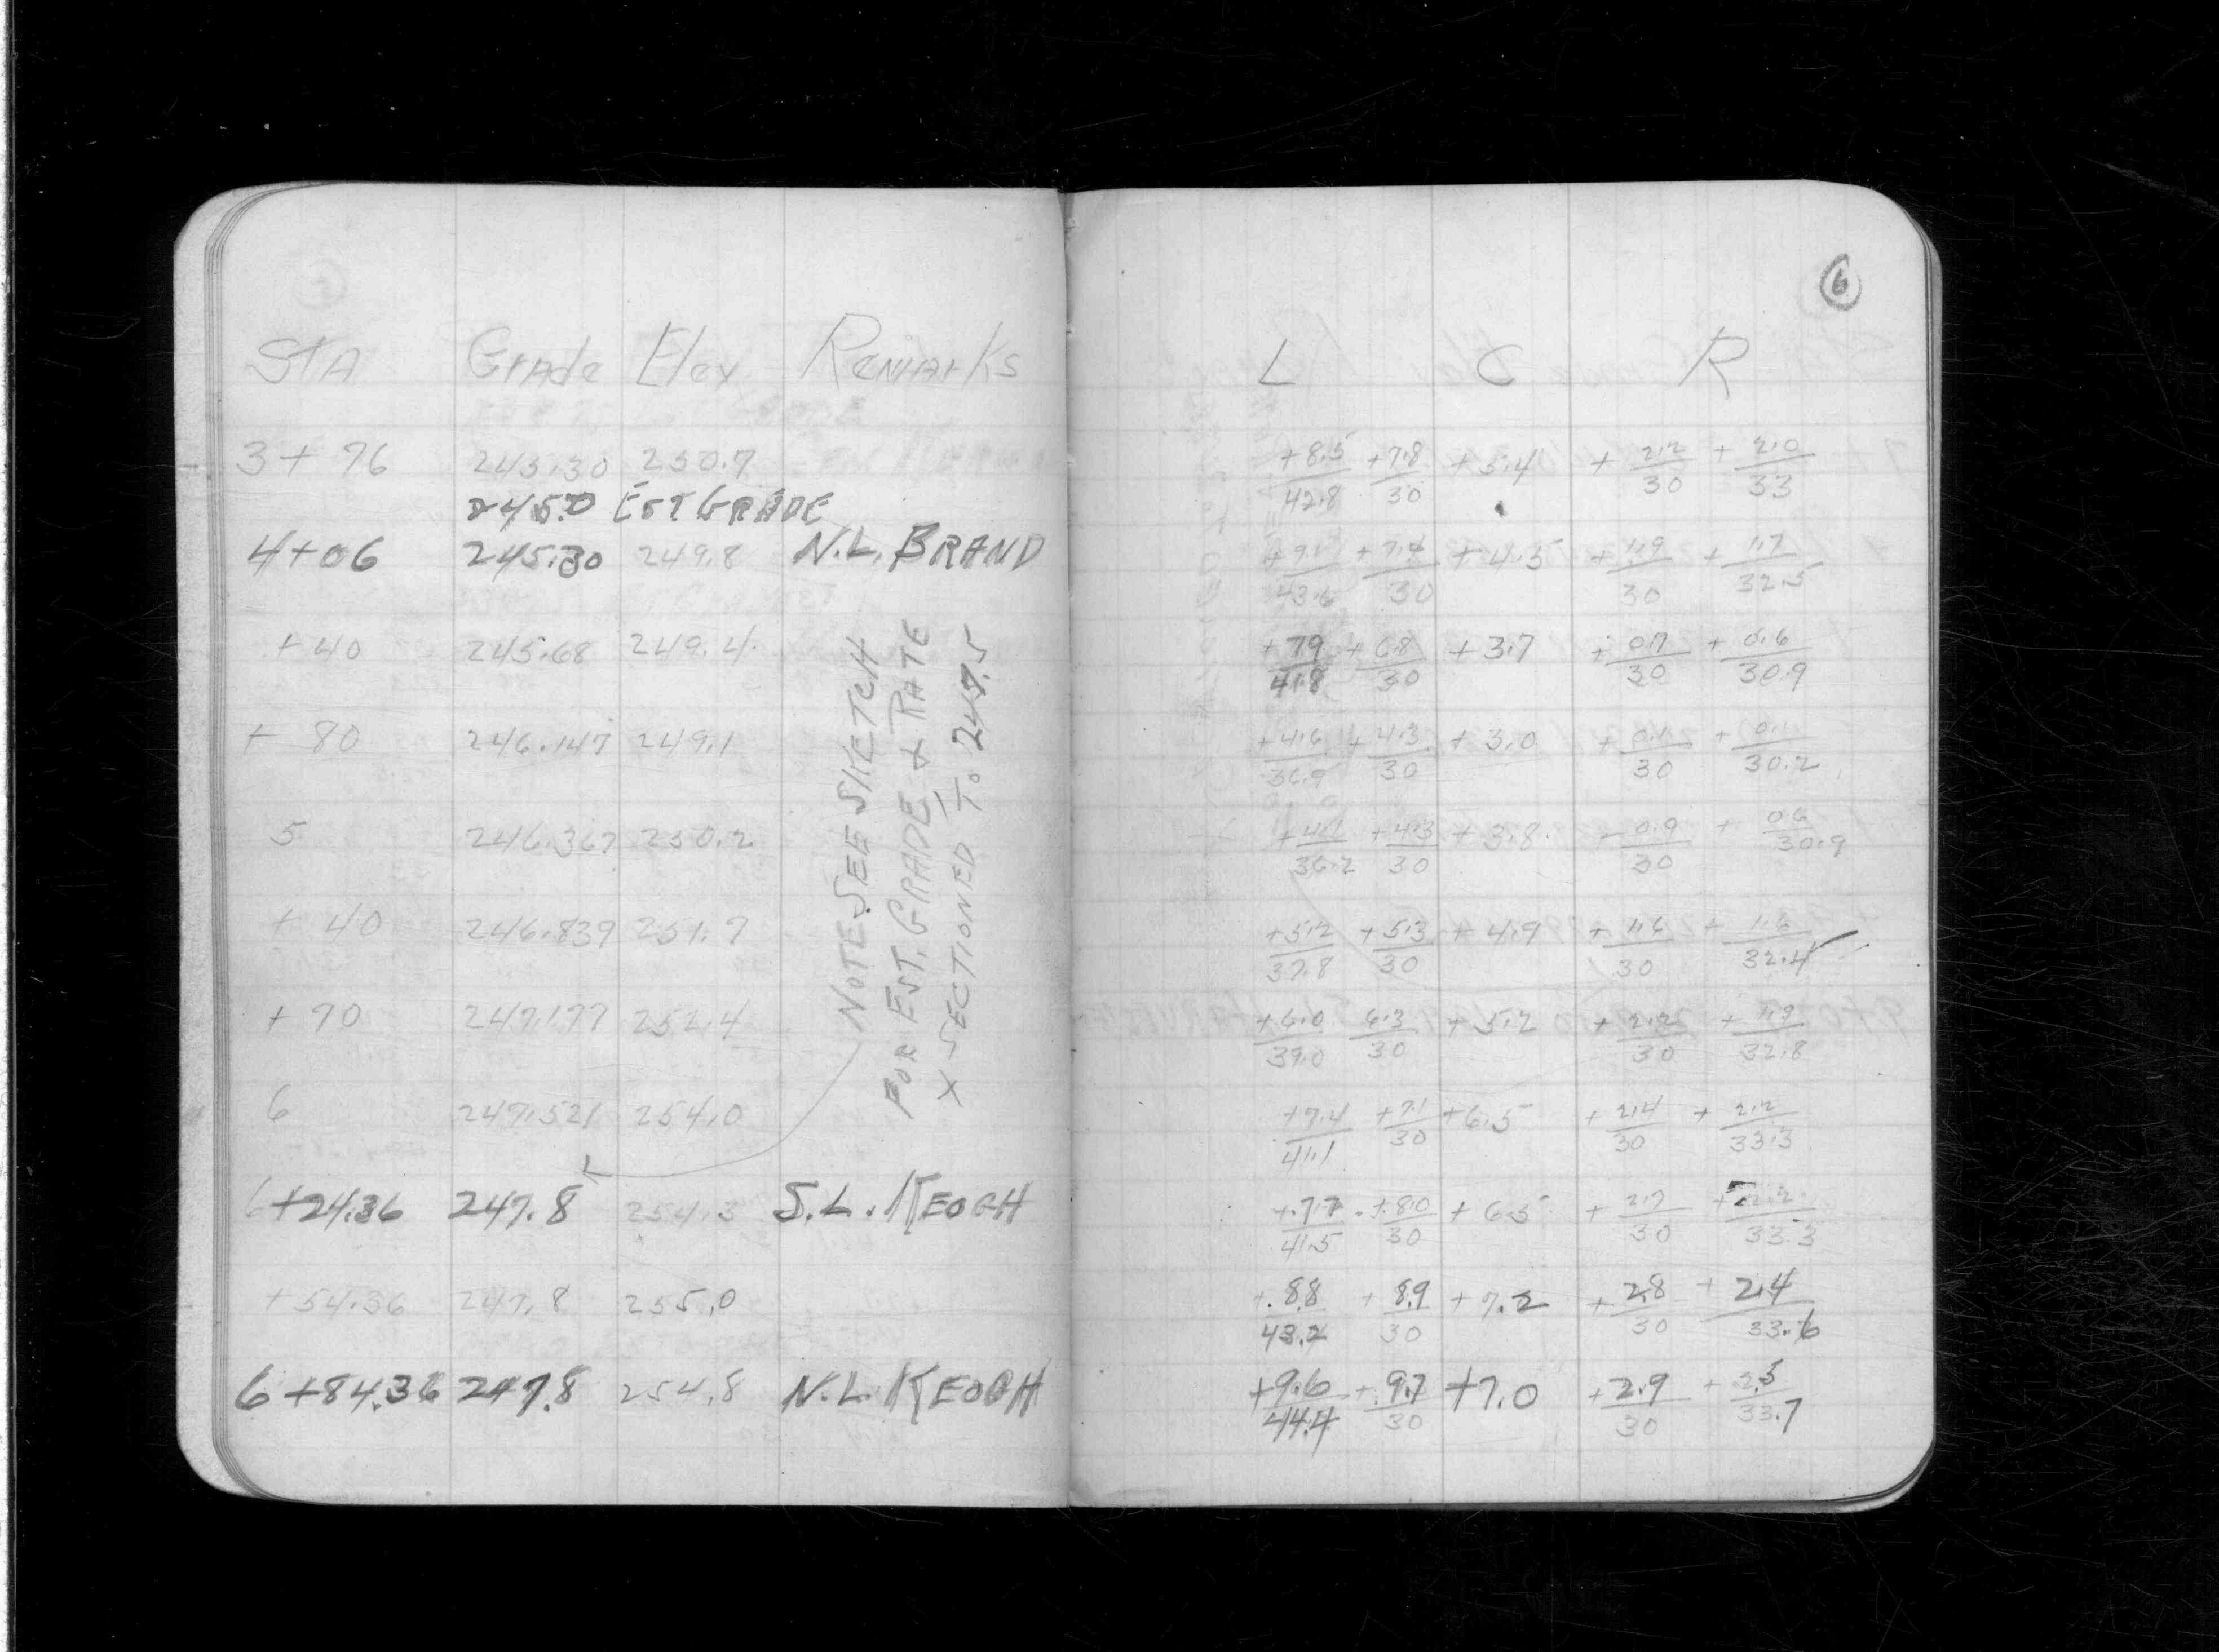 6
STA Grade Elev Remarks L C R
3+76 245.30 250.7 +8.5/42.8 +7.8/30 +5.4 +2.2/30 +2.0/33
245.0 EST GRADE
4+06 245.30 249.8 N.L. BRAND +9.1/43.6 +7.9/30 +4.5 +1.9/30 +1.7/32.5
+40 245.68 249.4 +7.9/41.8 +6.8/30 +3.7 +0.7/30 +0.6/30.9
+80 246.147 249.1 +4.6/36.9 +4.3/30 +3.0 +0.1/30 +0.1/30.2
5 246.367 250.2 +4.1/36.2 +4.3/30 +3.8 +0.9/30 +0.6/30.9
+40 246.839 251.7 +5.2/37.8 +5.3/30 +4.9 +1.6/30 +1.6/32.4
+70 247.177 252.4 +6.0/39.0 6.3/30 +5.2 +2.2/30 +1.9/32.8
6 247.521 254.0 +7.4/41.1 +7.1/30 +6.5 +2.4/30 +2.2/33.3
6+24.36 247.8 254.3 S.L. KEOGH +7.7/41.5 +8.0/30 +6.5 +2.7/30 +2.2/33.3
+54.36 247.8 255.0 +8.8/43.2 +8.9/30 +7.2 +2.8/30 +2.4/33.6
6+84.36 247.8 254.8 N.L. KEOGH +9.6/44.4 +9.7/30 +7.0 +2.9/30 +2.5/33.7
NOTE SEE SKETCH
FOR EST. GRADE & RATE
X SECTIONED TO 247.5